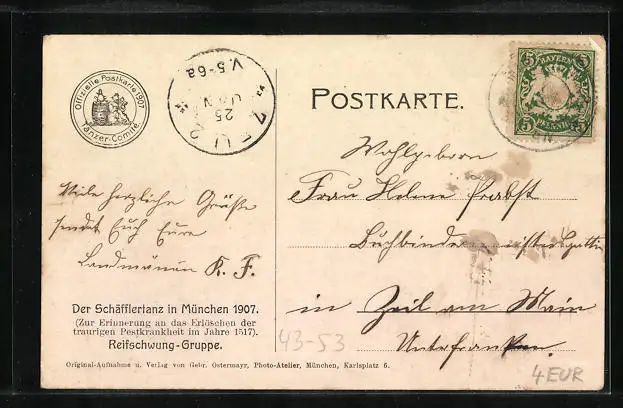 Offizielle Postkarte 1907
Tänzer-Comité.
V.5-6a
25
JAN
POSTKARTE.
BAYERN
5 5
PFENNIG
Wohlgeboren
Frau Helene Probst
Buchbindermeistersgattin
in Zeil am Main
Unterfranken.
Viele herzliche Grüße
sendet Euch Eure
Landmännin K. F.
Der Schäfflertanz in München 1907.
(Zur Erinnerung an das Erlöschen der
traurigen Pestkrankheit im Jahre 1517).
Reifschwung-Gruppe.
Original-Aufnahme u. Verlag von Gebr. Ostermayr, Photo-Atelier, München, Karlsplatz 6.
43-53
4 EUR